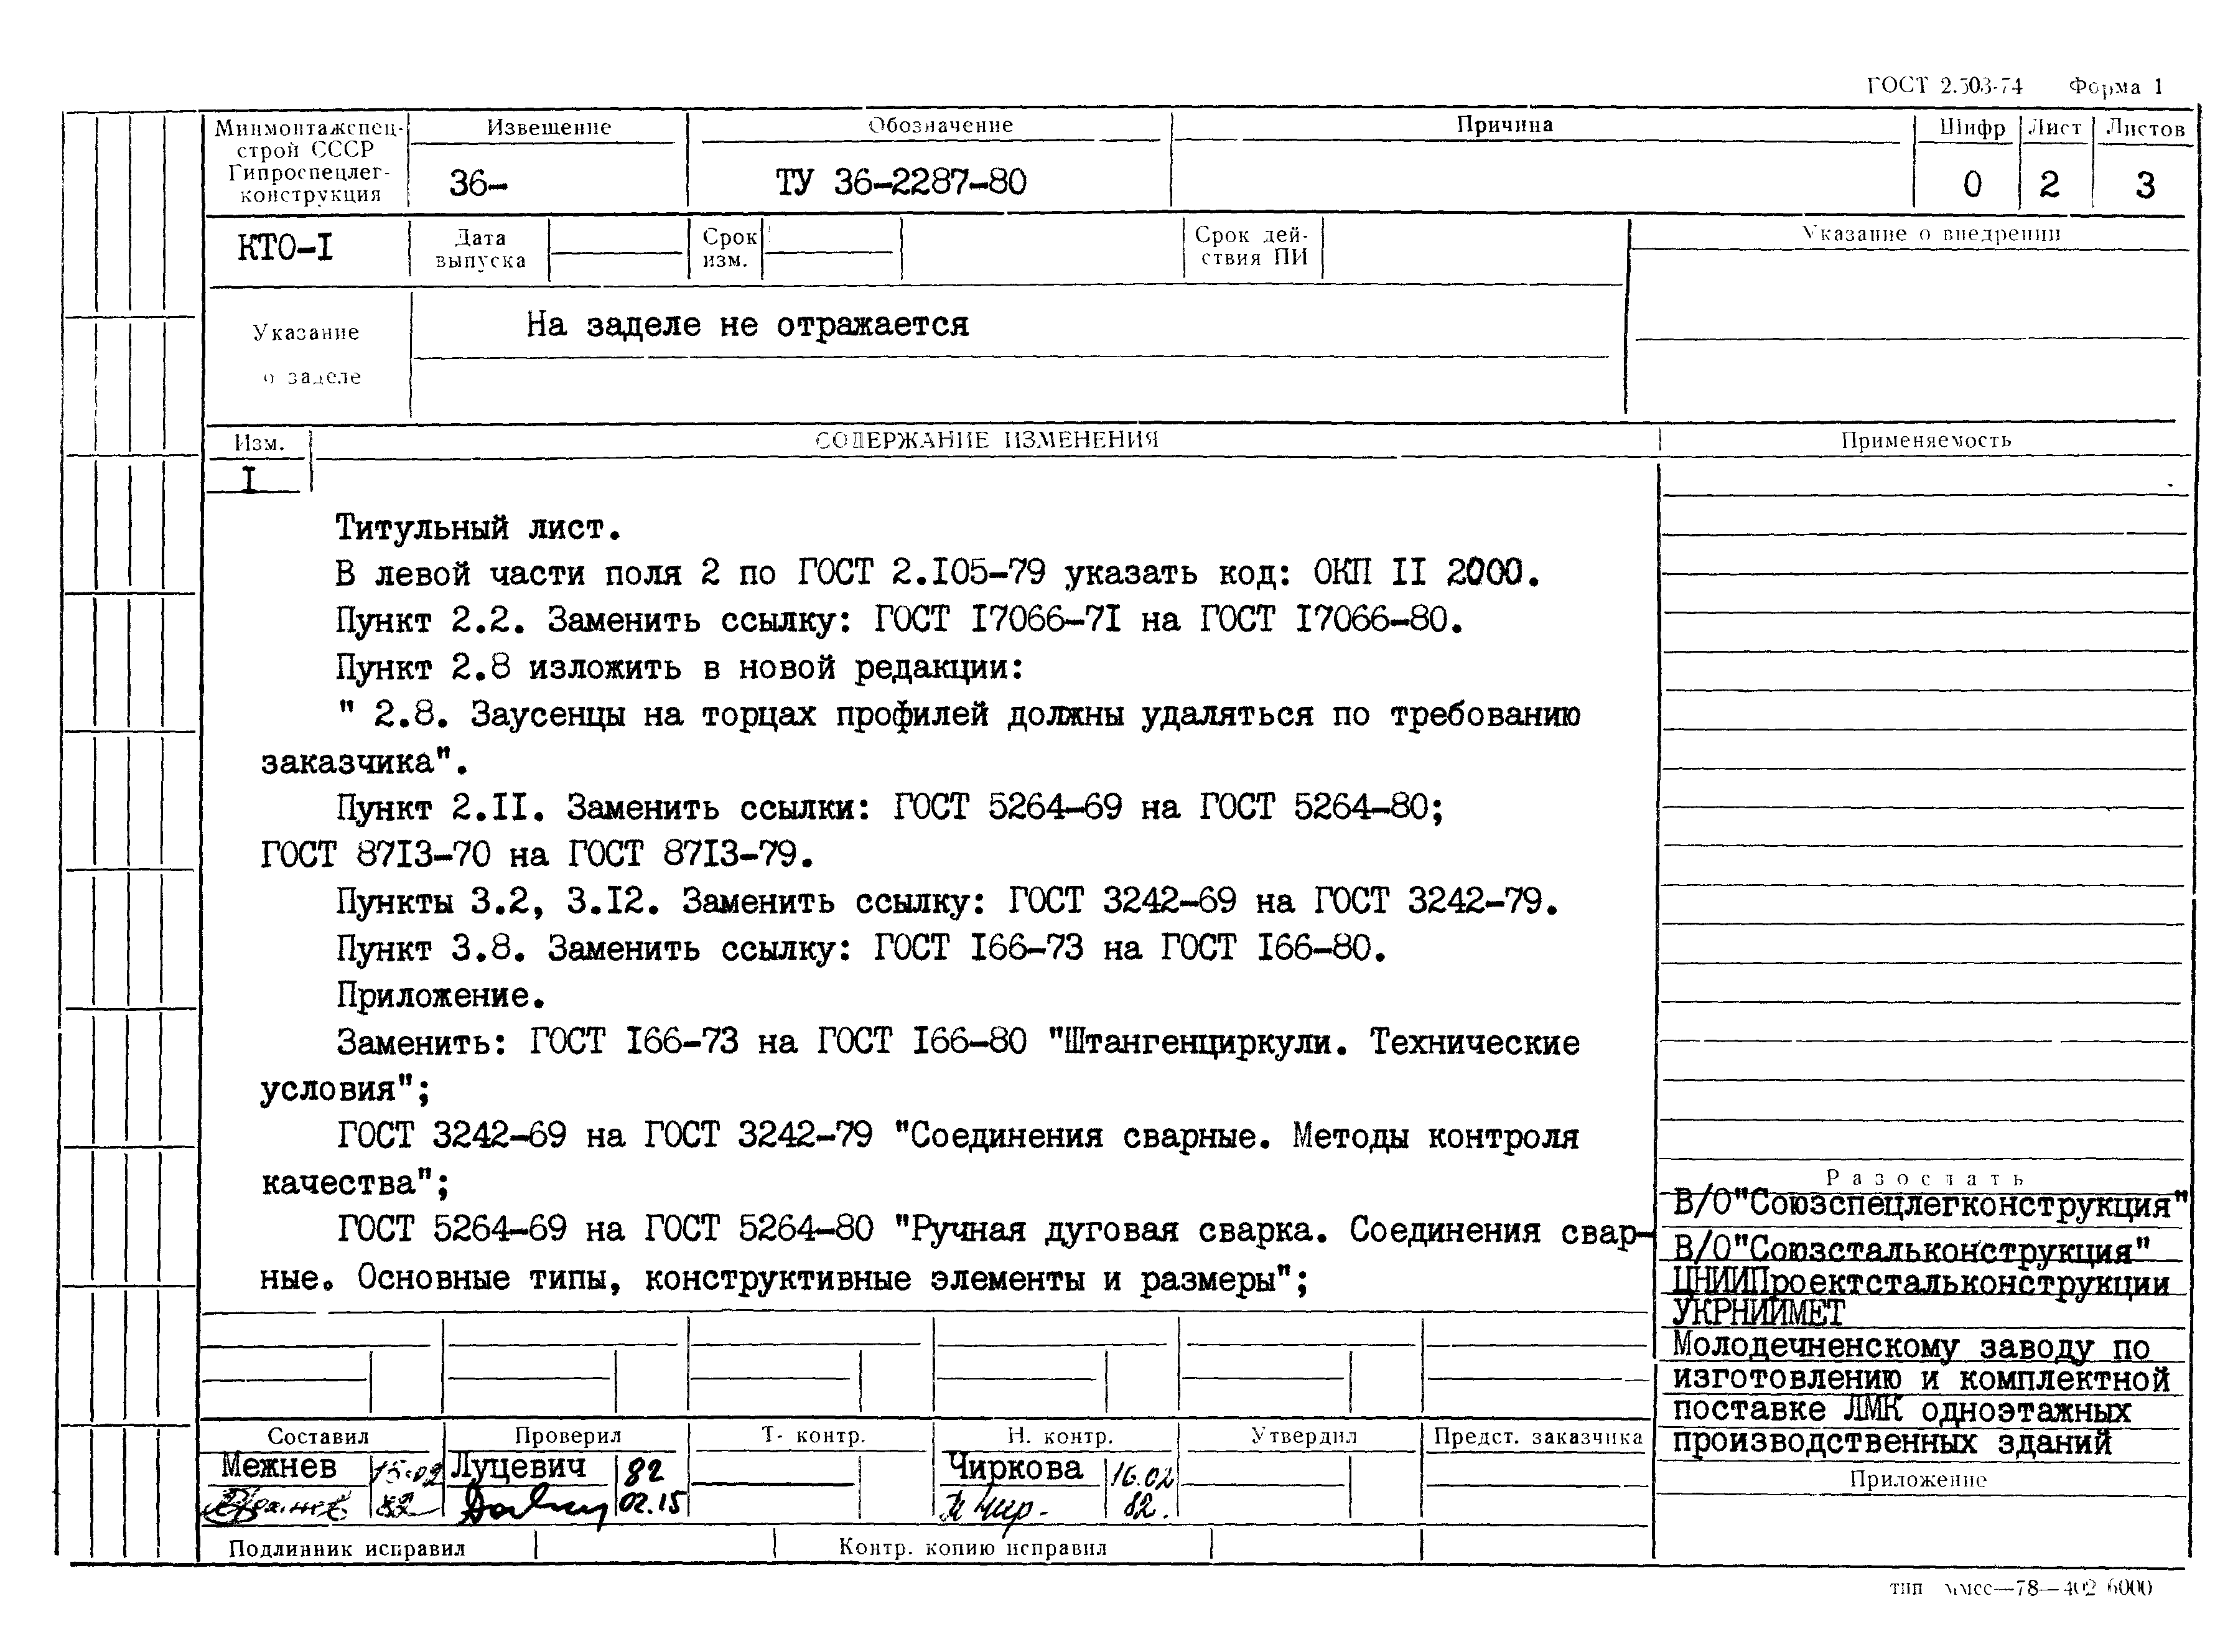 ГОСТ 2.503-74 Форма 1
Минмонтажспец-
строй СССР
Гипроспецлег-
конструкция
Извещение
36-
Обозначение
ТУ 36-2287-80
Причина
Шифр
0
Лист
2
Листов
3
КТО-I
Дата
выпуска
Срок
изм.
Срок дей-
ствия ПИ
Указание о внедрении
Указание
о заделе
На заделе не отражается
Изм.
I
СОДЕРЖАНИЕ ИЗМЕНЕНИЯ
Применяемость
Титульный лист.
В левой части поля 2 по ГОСТ 2.I05-79 указать код: ОКП II 2000.
Пункт 2.2. Заменить ссылку: ГОСТ I7066-7I на ГОСТ I7066-80.
Пункт 2.8 изложить в новой редакции:
" 2.8. Заусенцы на торцах профилей должны удаляться по требованию
заказчика".
Пункт 2.II. Заменить ссылки: ГОСТ 5264-69 на ГОСТ 5264-80;
ГОСТ 87I3-70 на ГОСТ 87I3-79.
Пункты 3.2, 3.I2. Заменить ссылку: ГОСТ 3242-69 на ГОСТ 3242-79.
Пункт 3.8. Заменить ссылку: ГОСТ I66-73 на ГОСТ I66-80.
Приложение.
Заменить: ГОСТ I66-73 на ГОСТ I66-80 "Штангенциркули. Технические
условия";
ГОСТ 3242-69 на ГОСТ 3242-79 "Соединения сварные. Методы контроля
качества";
ГОСТ 5264-69 на ГОСТ 5264-80 "Ручная дуговая сварка. Соединения свар-
ные. Основные типы, конструктивные элементы и размеры";
Разослать
В/О"Союзспецлегконструкция"
В/О"Союзстальконструкция"
ЦНИИПроектстальконструкции
УКРНИИМЕТ
Молодечненскому заводу по
изготовлению и комплектной
поставке ЛМК одноэтажных
производственных зданий
Приложение
Составил
Межнев 15.02
82
Проверил
Луцевич 82
02.15
Т- контр.
Н. контр.
Чиркова 16.02
82.
Утвердил
Предст. заказчика
Подлинник исправил
Контр. копию исправил
тип ммсс—78—402 6000